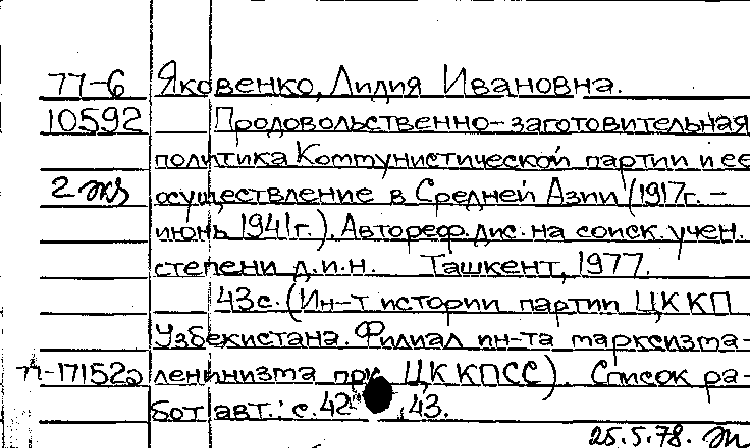 77-6 Яковенко, Лидия Ивановна.
10592 Продовольственно-заготовительная
политика Коммунистической партии и ее
2 экз осуществление в Средней Азии (1917г. –
июнь 1941г.). Автореф. дис. на соиск. учен.
степени д.и.н. Ташкент, 1977.
43с. (Ин-т истории партии ЦК КП
Узбекистана. Филиал ин-та марксизма-
ленинизма при ЦК ККПСС). Список ра-
бот авт.: с. 42, 43.
25.5.78.